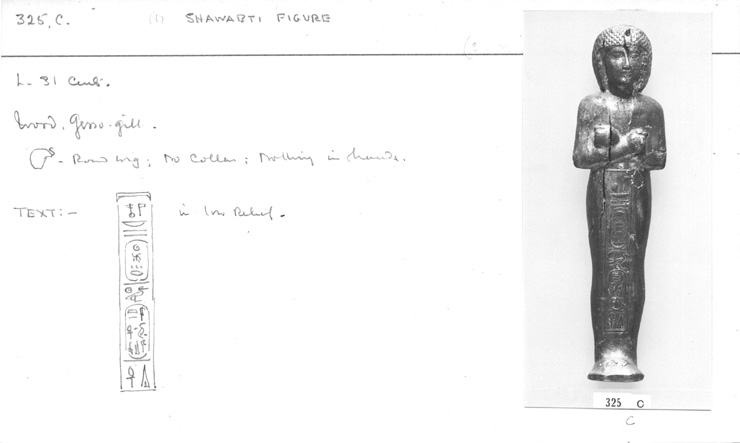 325, C. (1) SHAWABTI FIGURE
L- 31 Cents.
Wood, Gesso-gilt.
- Round wig; No Collar; Nothing in hands.
TEXT:- in low Relief.
325 C
C